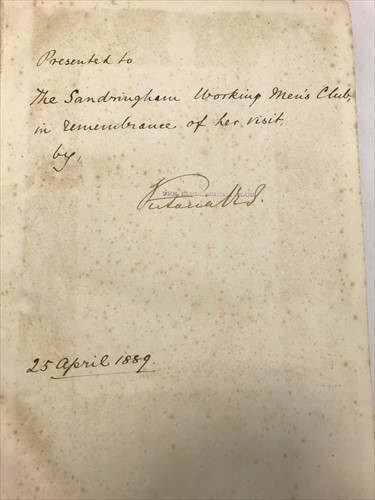 Presented to
The Sandringham Working Men's Club,
in remembrance of her visit.
by,
Victoria R I.
25 April 1889.